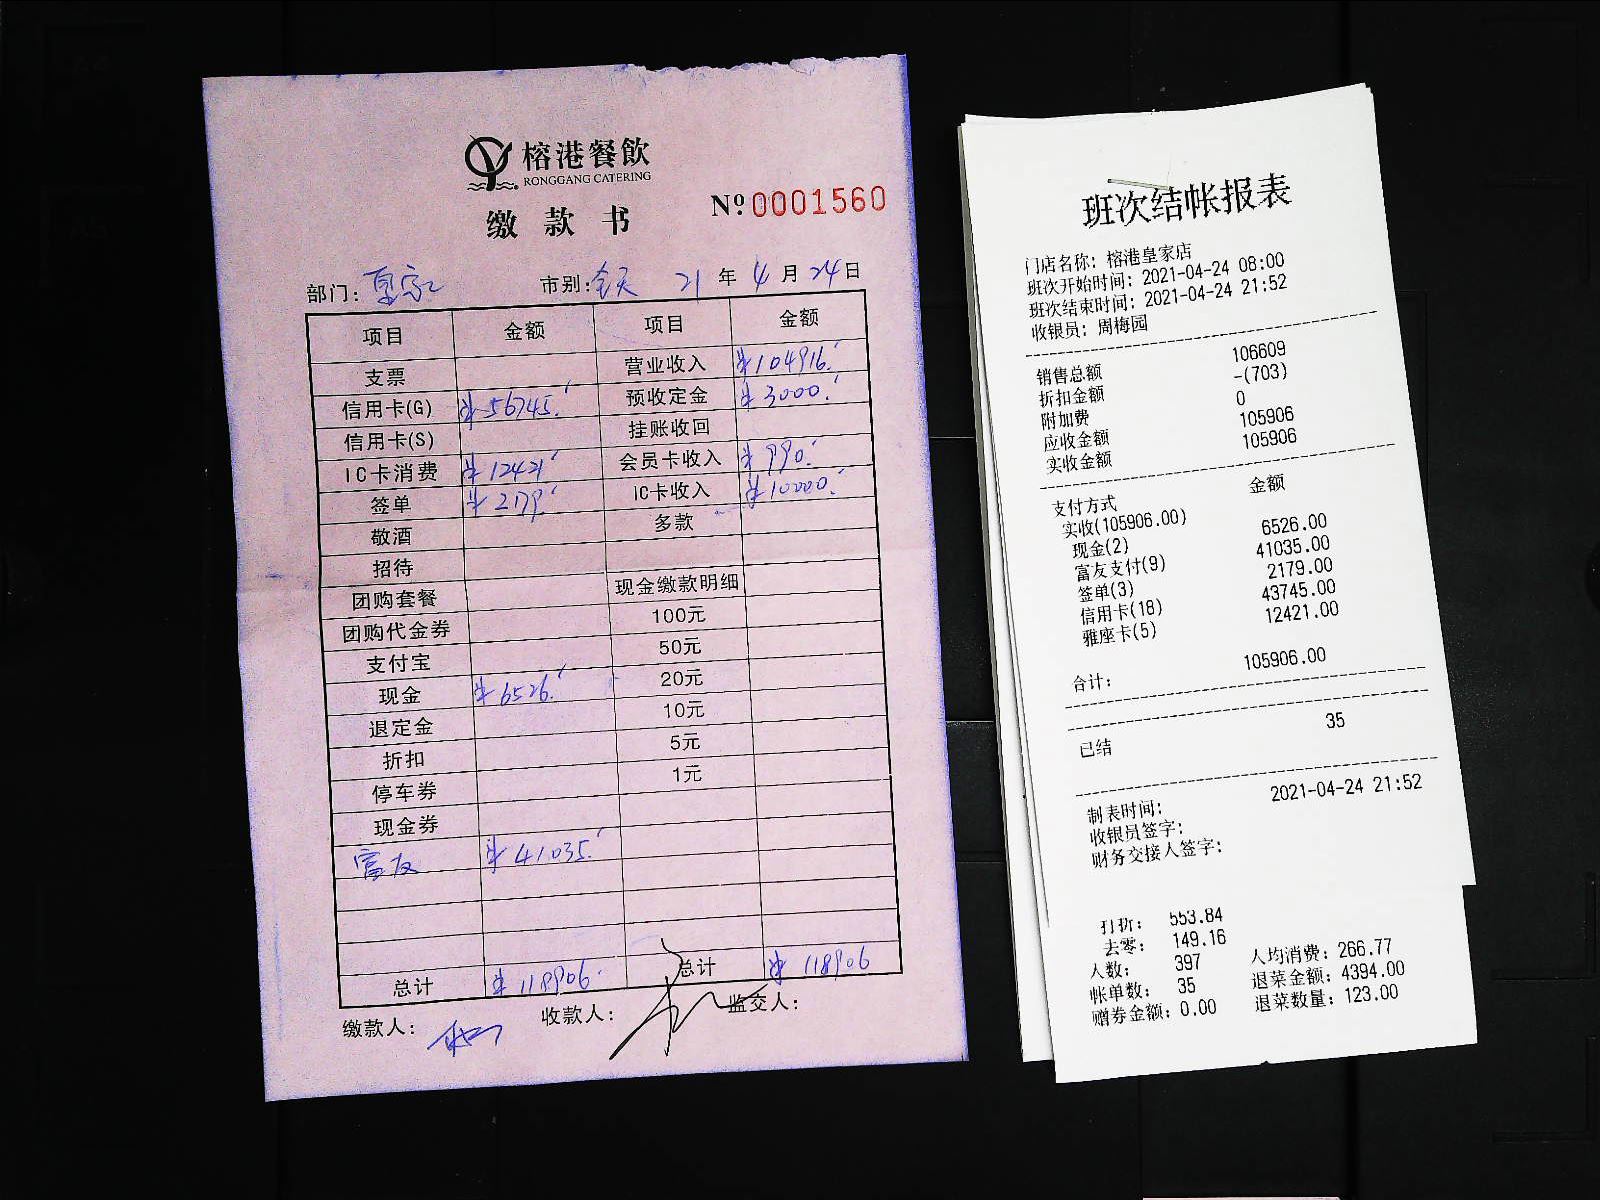 榕港餐飲
RONGGANG CATERING
缴款书
Nº 0001560
部门: 皇家 市别: 全天 21 年 4 月 24 日
项目 金额 项目 金额
支票 营业收入 ¥104916.
信用卡(G) ¥56745. 预收定金 ¥3000.
信用卡(S) 挂账收回
IC卡消费 ¥12421 会员卡收入 ¥990.
签单 ¥2179. IC卡收入 ¥10000.
敬酒 多款
招待
团购套餐 现金缴款明细
团购代金券 100元
支付宝 50元
现金 ¥6526. 20元
退定金 10元
折扣 5元
停车券 1元
现金券
富友 ¥41035.
总计 ¥118906. 总计 ¥118906
缴款人: 收款人: 监交人:
班次结帐报表
门店名称: 榕港皇家店
班次开始时间: 2021-04-24 08:00
班次结束时间: 2021-04-24 21:52
收银员: 周梅园
销售总额 106609
折扣金额 -(703)
附加费 0
应收金额 105906
实收金额 105906
支付方式 金额
实收(105906.00)
现金(2) 6526.00
富友支付(9) 41035.00
签单(3) 2179.00
信用卡(18) 43745.00
雅座卡(5) 12421.00
合计: 105906.00
已结 35
制表时间: 2021-04-24 21:52
收银员签字:
财务交接人签字:
打折: 553.84
去零: 149.16
人数: 397 人均消费: 266.77
帐单数: 35 退菜金额: 4394.00
赠券金额: 0.00 退菜数量: 123.00